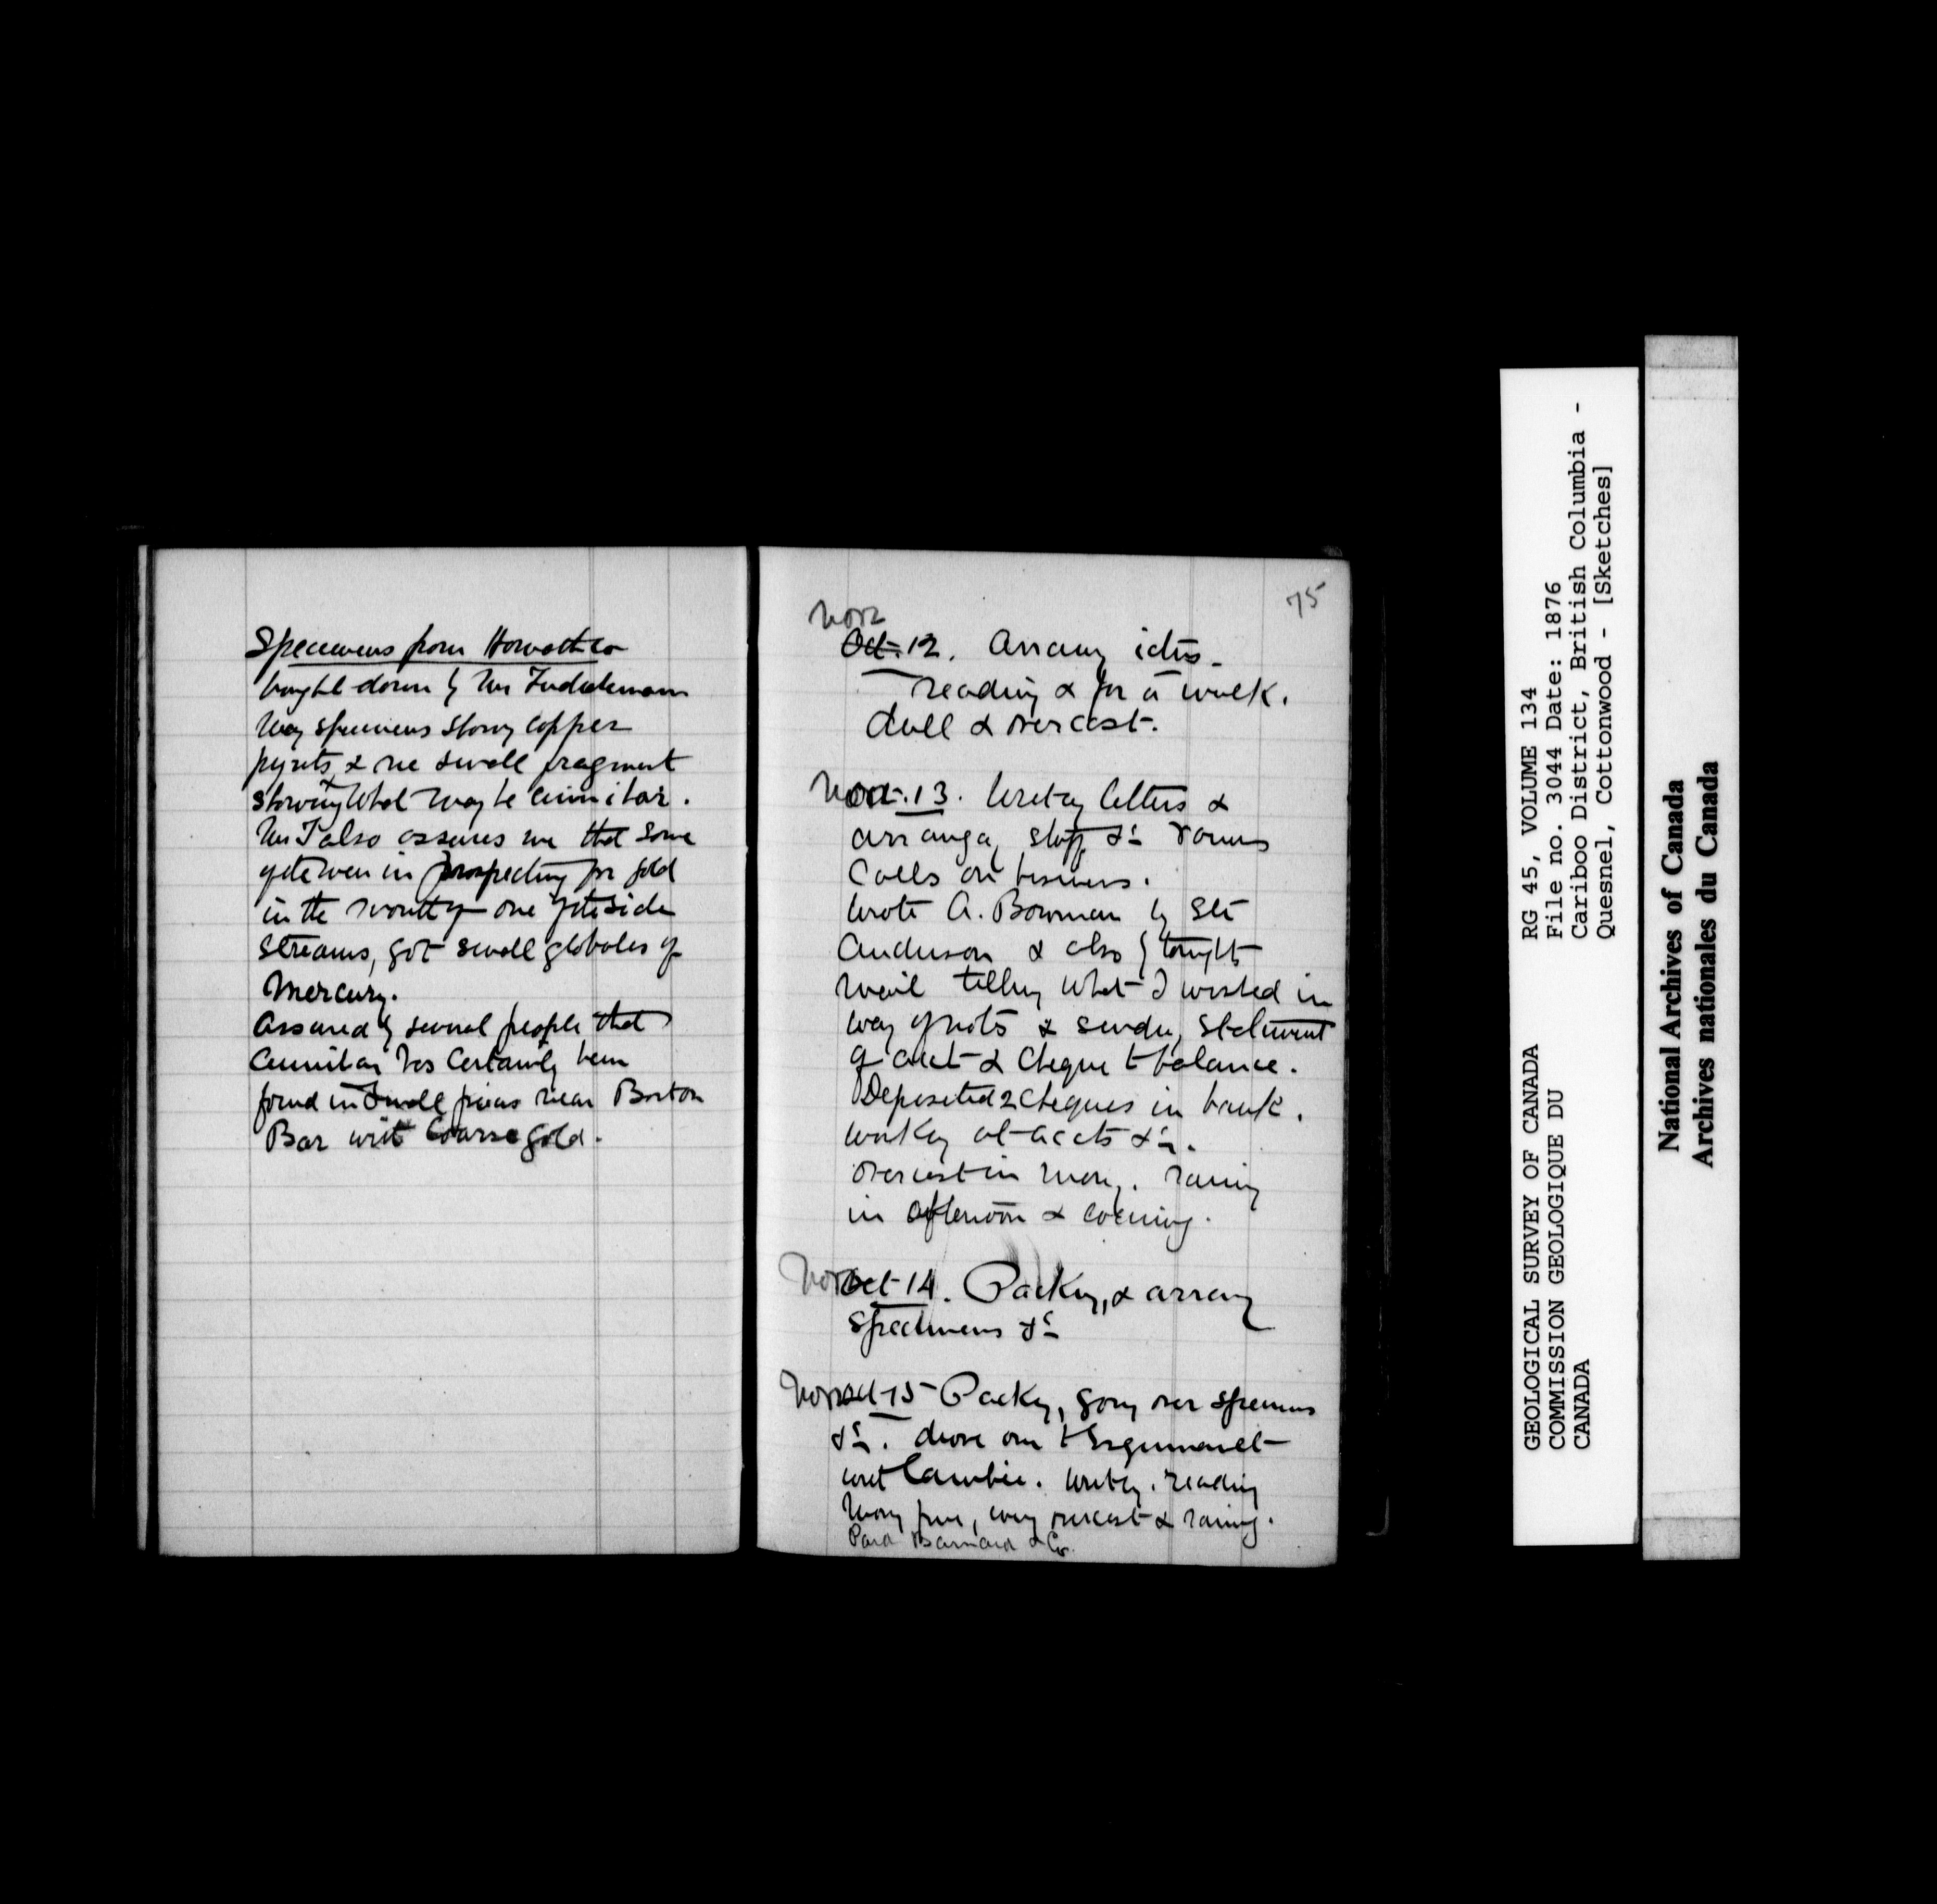 Specimens from Howatt co
brought down by Mr Tiedemann
Many specimens showg copper
pyrits & one small fragment
showing what may be cinnibar.
Mr T also assures me that some
of the men in prospecting for gold
in the mouth of one of the side
streams, got small globules of
Mercury.
Assured by several people that
Cinnibar has certainly been
found in small pieces near Boston
Bar with coarse gold.
75
Nov
Oct. 12. Arrang
reading & for a walk.
dull & overcast.
Nov Oct. 13. Writing letters &
arranging stuff &c. rooms
Calls on business.
Wrote A. Bowman by
Anderson & also by tonight's
mail telling what I wished in
way of nots & sending statement
of acct & cheque to balance.
Deposited 2 cheques in bank.
Working at accts &c.
overcast in morng. raining
in afternoon & evening.
Nov Oct 14. Packing, & arrang
specimens &c
Nov Oct 15 Packg, going over specimens
&c. drove out to Esquimault
with Cambie. writing. reading
Morng fine, evng overcast & raining.
Paid Barnard & Co.
GEOLOGICAL SURVEY OF CANADA
COMMISSION GEOLOGIQUE DU
CANADA
RG 45, VOLUME 134
File no. 3044 Date: 1876
Cariboo District, British Columbia -
Quesnel, Cottonwood - [Sketches]
National Archives of Canada
Archives nationales du Canada